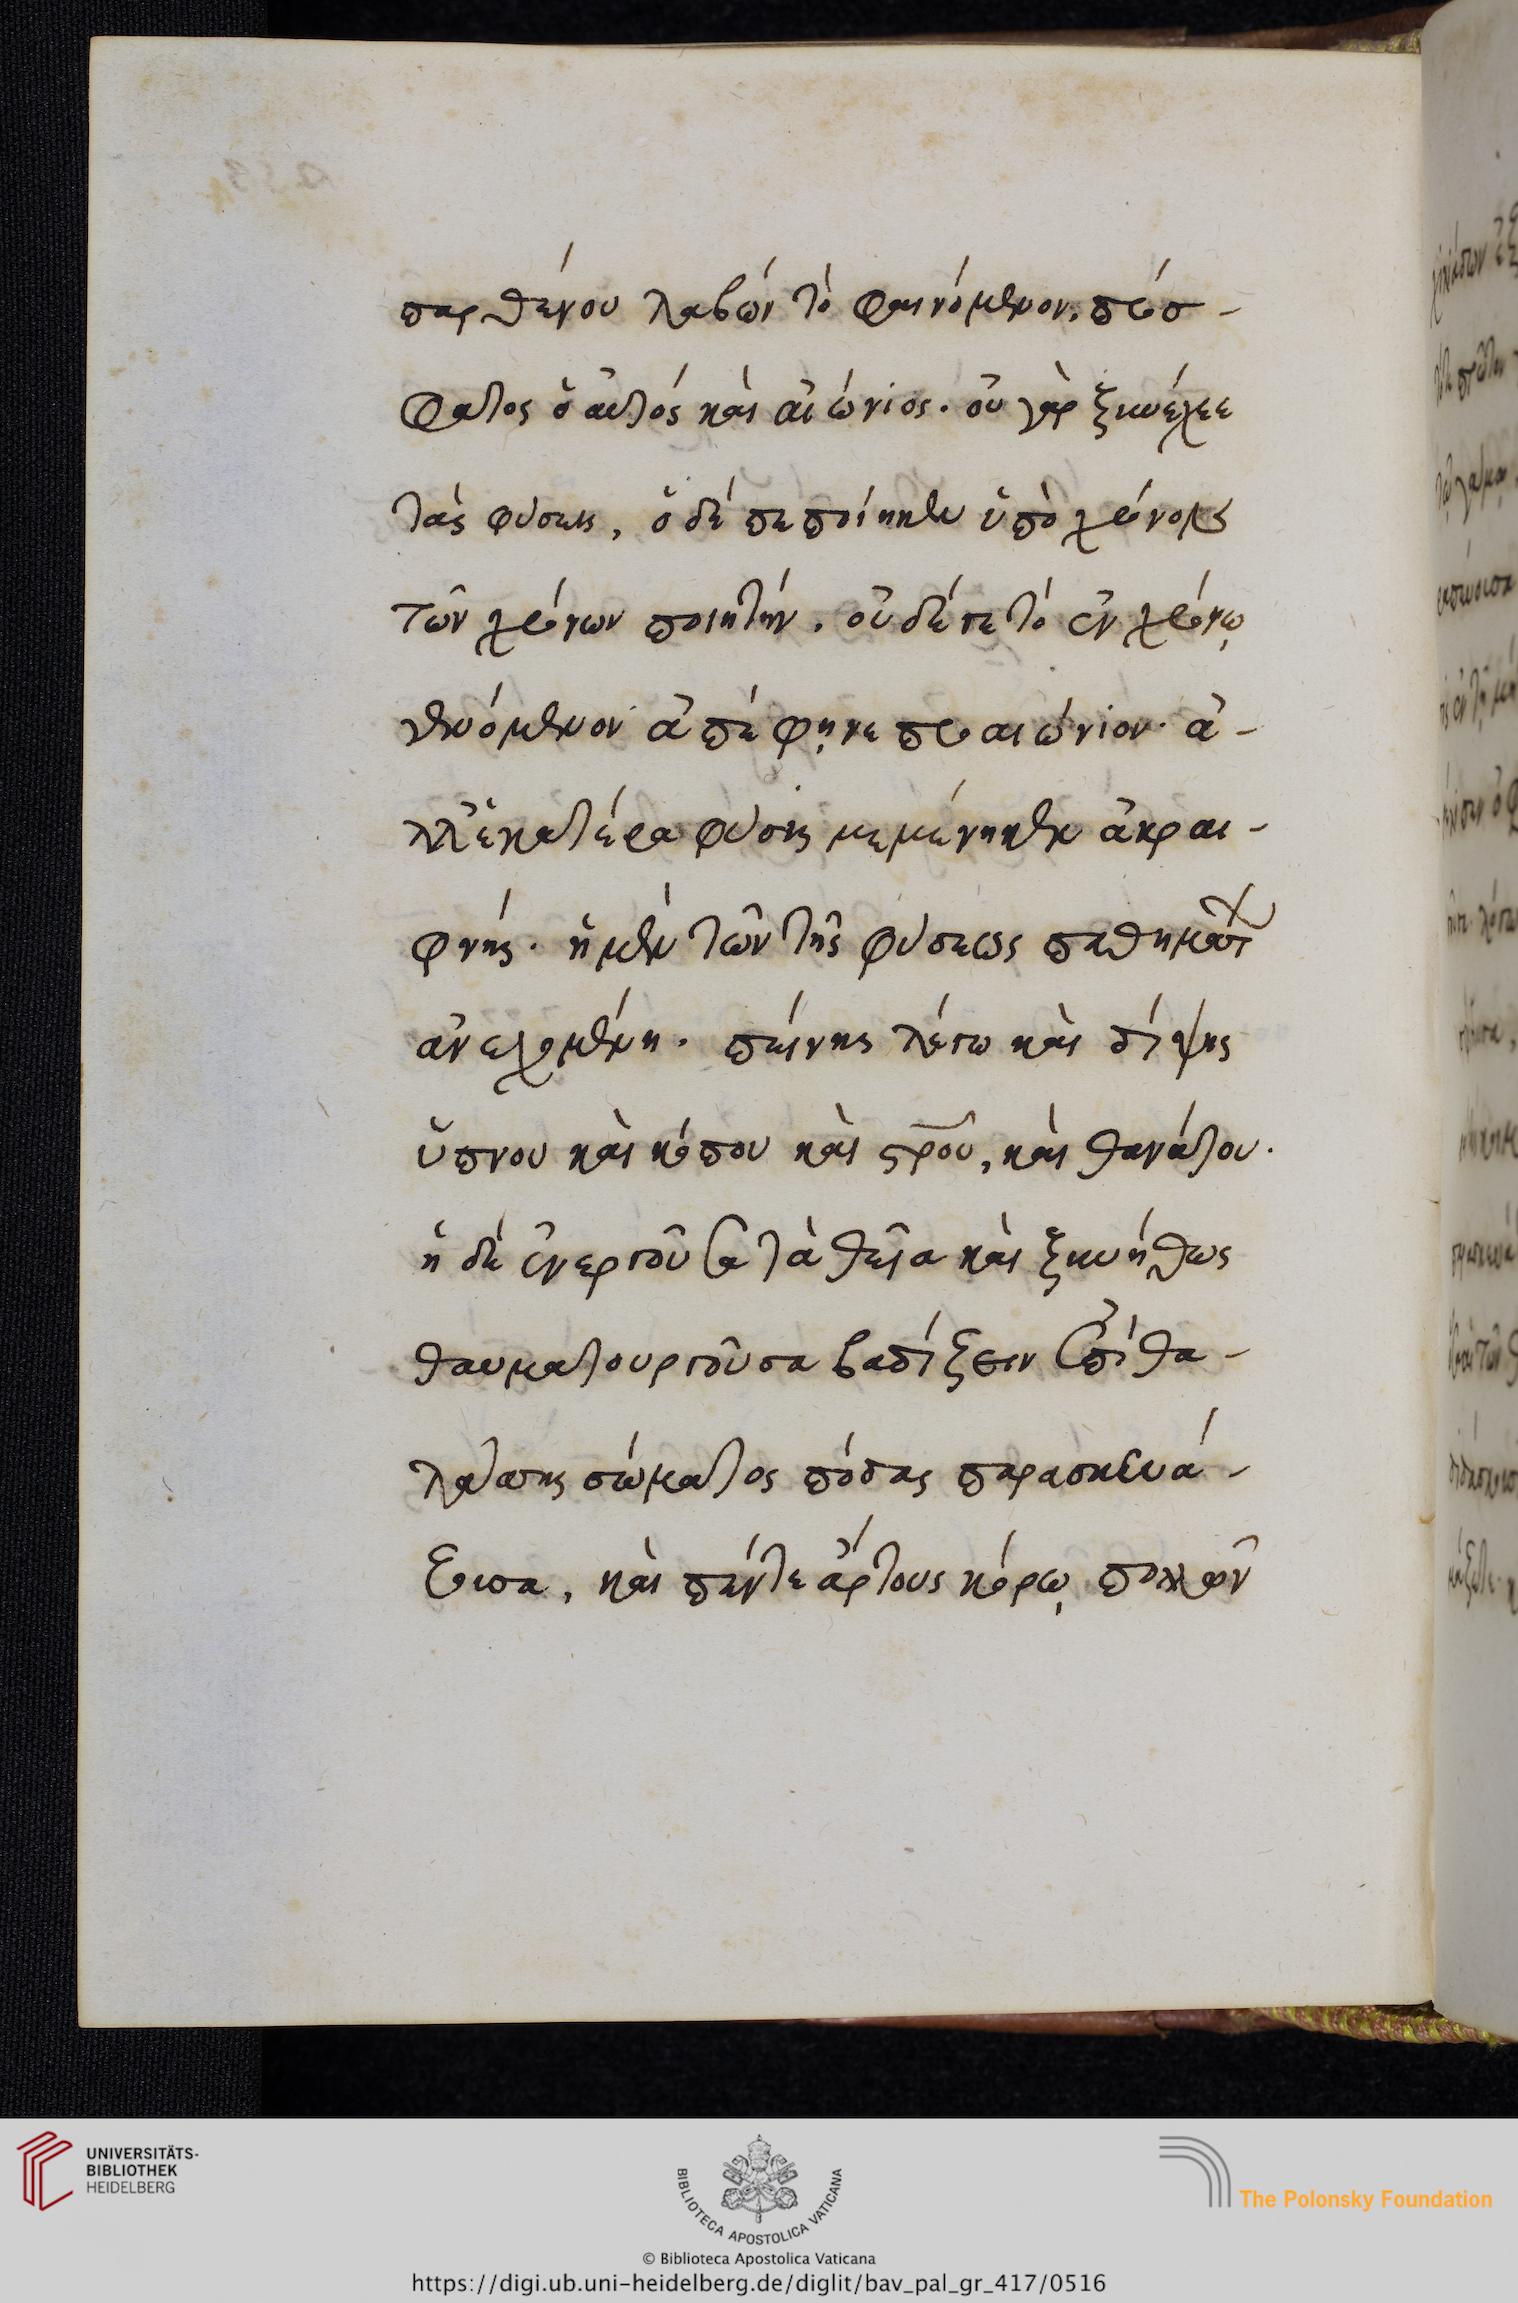 παρθένου λαβών τὸ φαινόμενον. πρόσ-
φατος ὁ αὐτός καὶ αἰώνιος. οὐ γὰρ ξυνέχεε
τὰς φύσεις, οὐδέ πεποίηκεν ὑπὸ χρόνον
τῶν χρόνων ποιητήν. οὐδέ γε τό ἐν χρόνῳ
γενόμενον ἀπέφηνε προαιώνιον. ἀ-
λλ' ἑκατέρα φύσις μεμένηκεν ἀκραι-
φνής. ἡ μὲν τῶν τῆς φύσεως παθημάτ
ἀνεχομένη. πείνης λέγω καὶ δίψης
ὕπνου καὶ κόπου καὶ στροῦ, καὶ θανάτου.
ἡ δὲ ἐνεργοῦσα τὰ θεῖα καὶ ξυνήθως
θαυματουργοῦσα βαδίζειν ἐπὶ θα-
λάττης σώματος πόδας παρασκευά-
ζουσα, καὶ πέντε ἄρτους κόρῳ πολλῶν
UNIVERSITÄTS-
BIBLIOTHEK
HEIDELBERG
BIBLIOTECA APOSTOLICA VATICANA
The Polonsky Foundation
© Biblioteca Apostolica Vaticana
https://digi.ub.uni-heidelberg.de/diglit/bav_pal_gr_417/0516